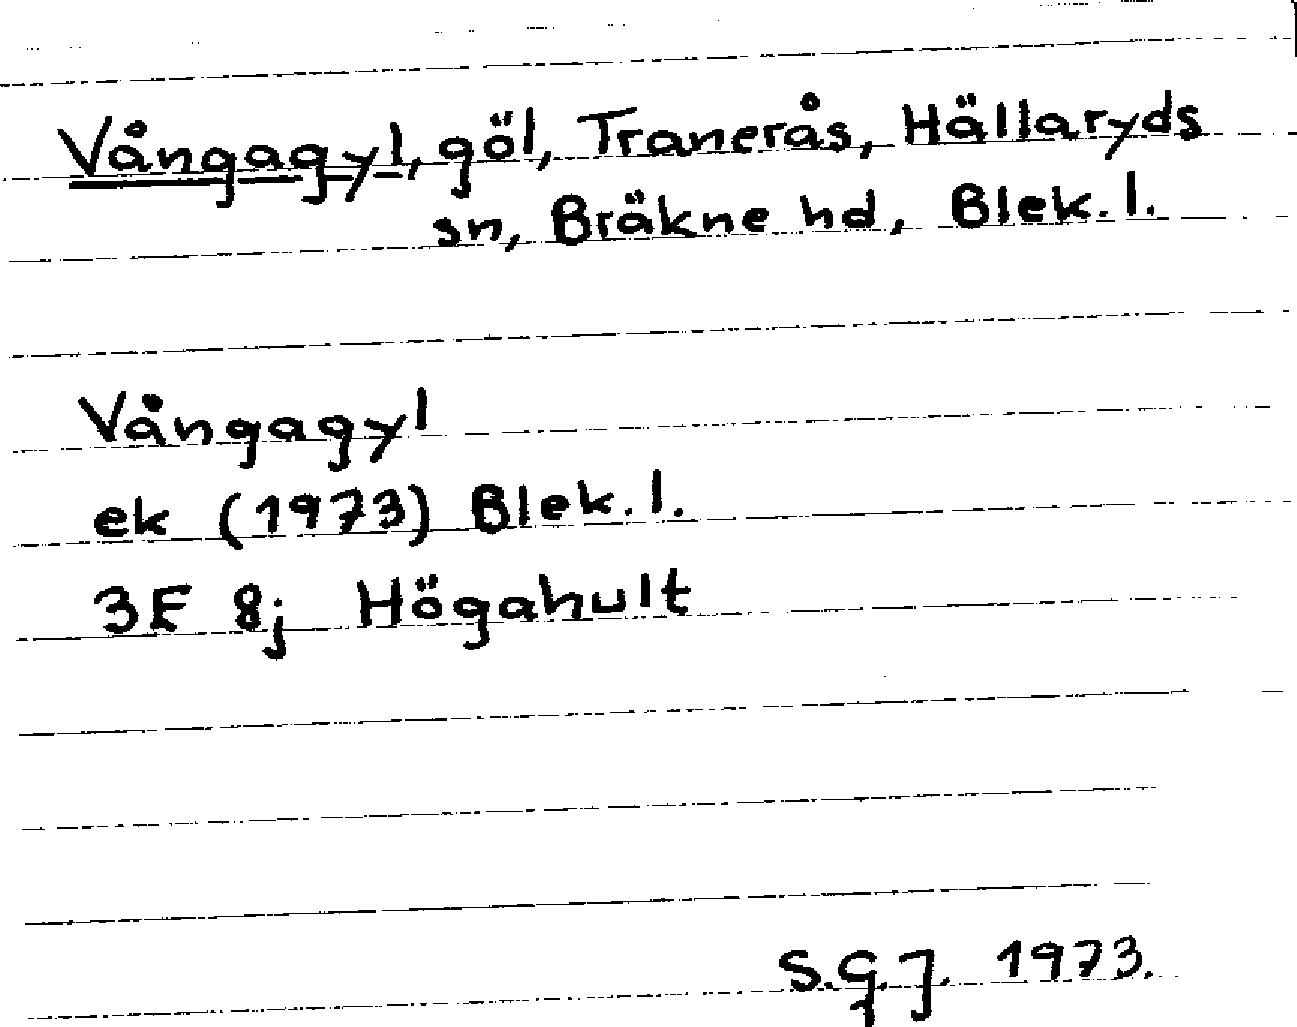 Vångagyl, göl, Tranerås, Hällaryds
sn, Bräkne hd, Blek. l.
Vångagyl
ek (1973) Blek. l.
3E 8j Högahult
S.G.J. 1973.